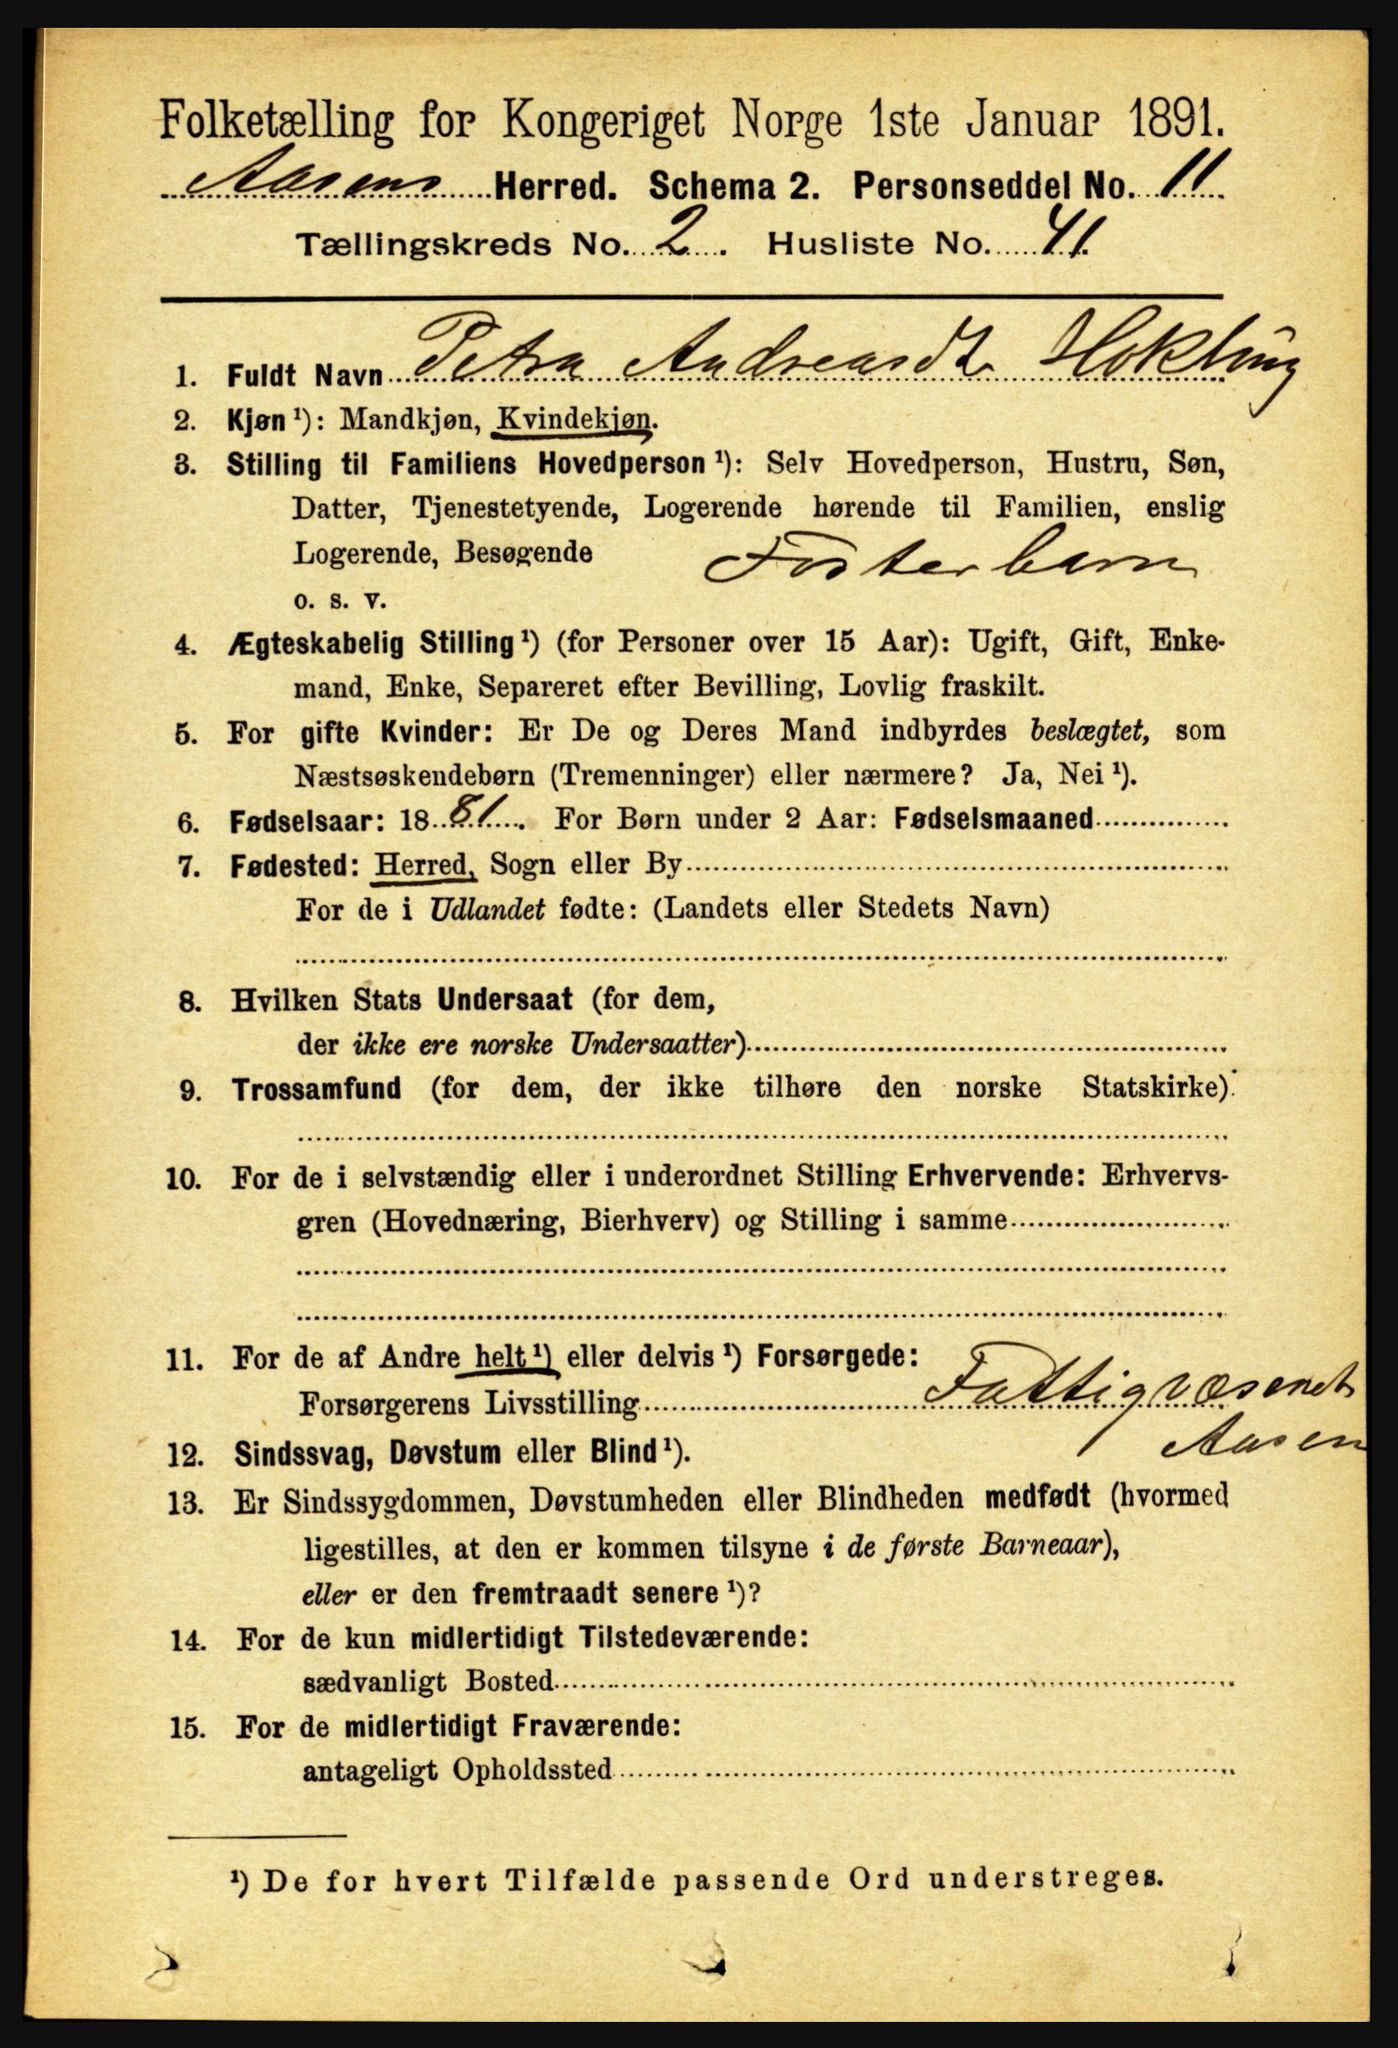 Folketælling for Kongeriget Norge 1ste Januar 1891.
Aasens Herred. Schema 2. Personseddel No. 11
Tællingskreds No. 2. Husliste No. 41.
1. Fuldt Navn Petra Andreasdt Hokling
2. Kjøn ¹): Mandkjøn, Kvindekjøn.
3. Stilling til Familiens Hovedperson ¹): Selv Hovedperson, Hustru, Søn,
Datter, Tjenestetyende, Logerende hørende til Familien, enslig
Logerende, Besøgende Fosterbarn
o. s. v.
4. Ægteskabelig Stilling ¹) (for Personer over 15 Aar): Ugift, Gift, Enke-
mand, Enke, Separeret efter Bevilling, Lovlig fraskilt.
5. For gifte Kvinder: Er De og Deres Mand indbyrdes beslægtet, som
Næstsøskendebørn (Tremenninger) eller nærmere? Ja, Nei ¹).
6. Fødselsaar: 1881. For Børn under 2 Aar: Fødselsmaaned
7. Fødested: Herred, Sogn eller By
For de i Udlandet fødte: (Landets eller Stedets Navn)
8. Hvilken Stats Undersaat (for dem,
der ikke ere norske Undersaatter)
9. Trossamfund (for dem, der ikke tilhøre den norske Statskirke)
10. For de i selvstændig eller i underordnet Stilling Erhvervende: Erhvervs-
gren (Hovednæring, Bierhverv) og Stilling i samme
11. For de af Andre helt ¹) eller delvis ¹) Forsørgede:
Forsørgerens Livsstilling Fattigvæsenet
Aasen
12. Sindssvag, Døvstum eller Blind ¹).
13. Er Sindssygdommen, Døvstumheden eller Blindheden medfødt (hvormed
ligestilles, at den er kommen tilsyne i de første Barneaar),
eller er den fremtraadt senere ¹)?
14. For de kun midlertidigt Tilstedeværende:
sædvanligt Bosted
15. For de midlertidigt Fraværende:
antageligt Opholdssted
¹) De for hvert Tilfælde passende Ord understreges.